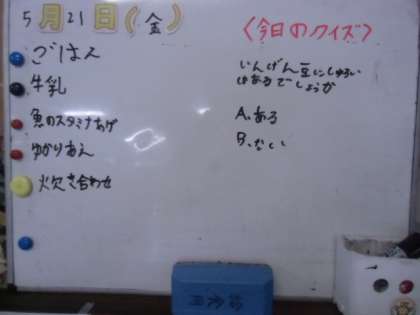 5月21日(金)
ごはん
牛乳
魚のスタミナあげ
ゆかりあえ
炊き合わせ
〈今日のクイズ〉
いんげん豆にしゅるい
はあるでしょうか
A、ある
B、ない